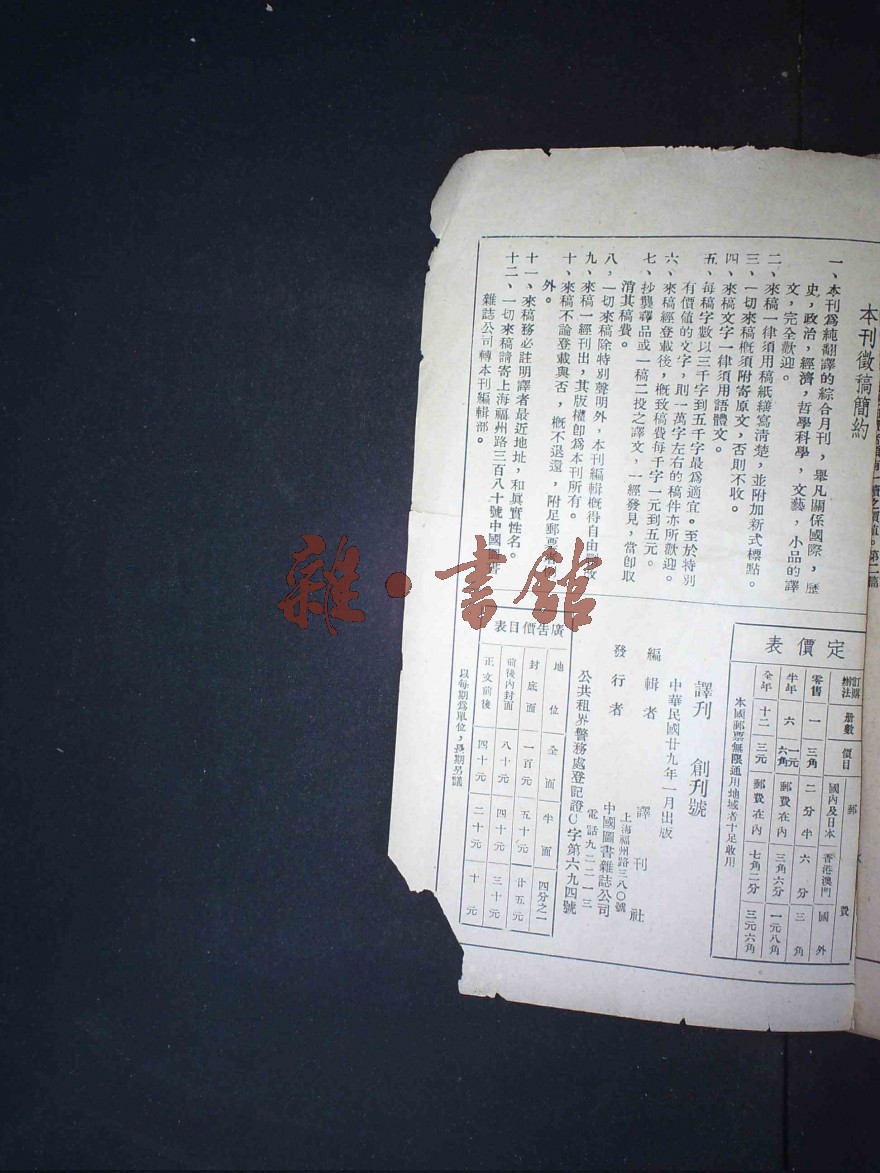 本刊徵稿簡約
一、本刊爲純翻譯的綜合月刊，舉凡關係國際，歷
史，政治，經濟，哲學科學，文藝，小品的譯
文，完全歡迎。
二、來稿一律須用稿紙繕寫清楚，並附加新式標點。
三、一切來稿概須附寄原文，否則不收。
四、來稿文字一律須用語體文。
五、每稿字數以三千字到五千字最爲適宜。至於特別
有價值的文字，則一萬字左右的稿件亦所歡迎。
六、來稿經登載後，概致稿費每千字一元到五元。
七、抄襲譯品或一稿二投之譯文，一經發見，當卽取
消其稿費。
八，一切來稿除特別聲明外，本刊編輯概得自由刪改
九、來稿一經刊出，其版權卽爲本刊所有。
十、來稿不論登載與否，概不退還，附足郵票
外。
十一、來稿務必註明譯者最近地址，和眞實性名。
十二、一切來稿請寄上海福州路三百八十號中國圖書
雜誌公司轉本刊編輯部。
定價表
訂購辦法 冊數 價目 郵費
國內及日本 香港澳門 國外
零售 一 三角 二分半 六分 三角
半年 六 一元六角 郵費在內 三角六分 一元八角
全年 十二 三元 郵費在內 七角二分 三元六角
本國郵票無限通用地域者十足收用
譯刊 創刊號
中華民國廿九年一月出版
編輯者 譯刊社
上海福州路三八〇號
發行者 中國圖書雜誌公司
電話九二二一三
公共租界警務處登記證C字第六九四號
廣告價目表
地位 全面 半面 四分之一
封底面 一百元 五十元 廿五元
前後內封面 八十元 四十元 三十元
正文前後 四十元 二十元 十元
以每期爲單位，長期另議
雜·書館